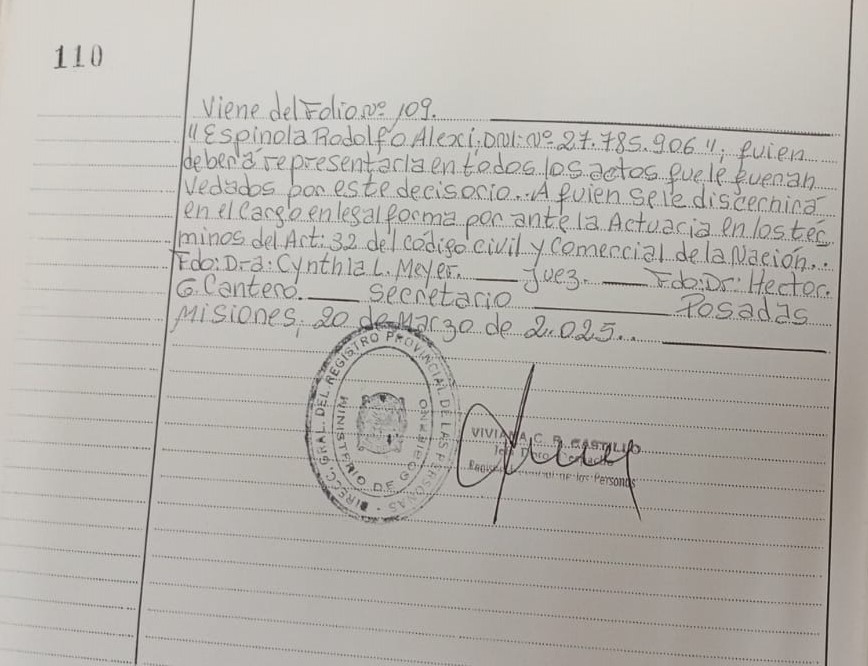 110
Viene del Folio Nº 109.
"Espinola Rodolfo Alexi. DNI: Nº 27.785.906", quien
deberá representarla en todos los actos que le fueran
vedados por este decisorio.. A quien se le discernirá
en el cargo en legal forma por ante la Actuaria en los tér
minos del Art: 32 del código civil y Comercial de la Nación..
Fdo: Dra: Cynthia L. Meyer. Juez. Fdo: Dr: Hector.
G. Cantero. Secretario Posadas
Misiones, 20 de Marzo de 2.025..
DIREC. GRAL. DEL REGISTRO PROVINCIAL DE LAS PERSONAS
MINISTERIO DE GOBIERNO
VIVIANA C. R. CASTILLO
de las Personas